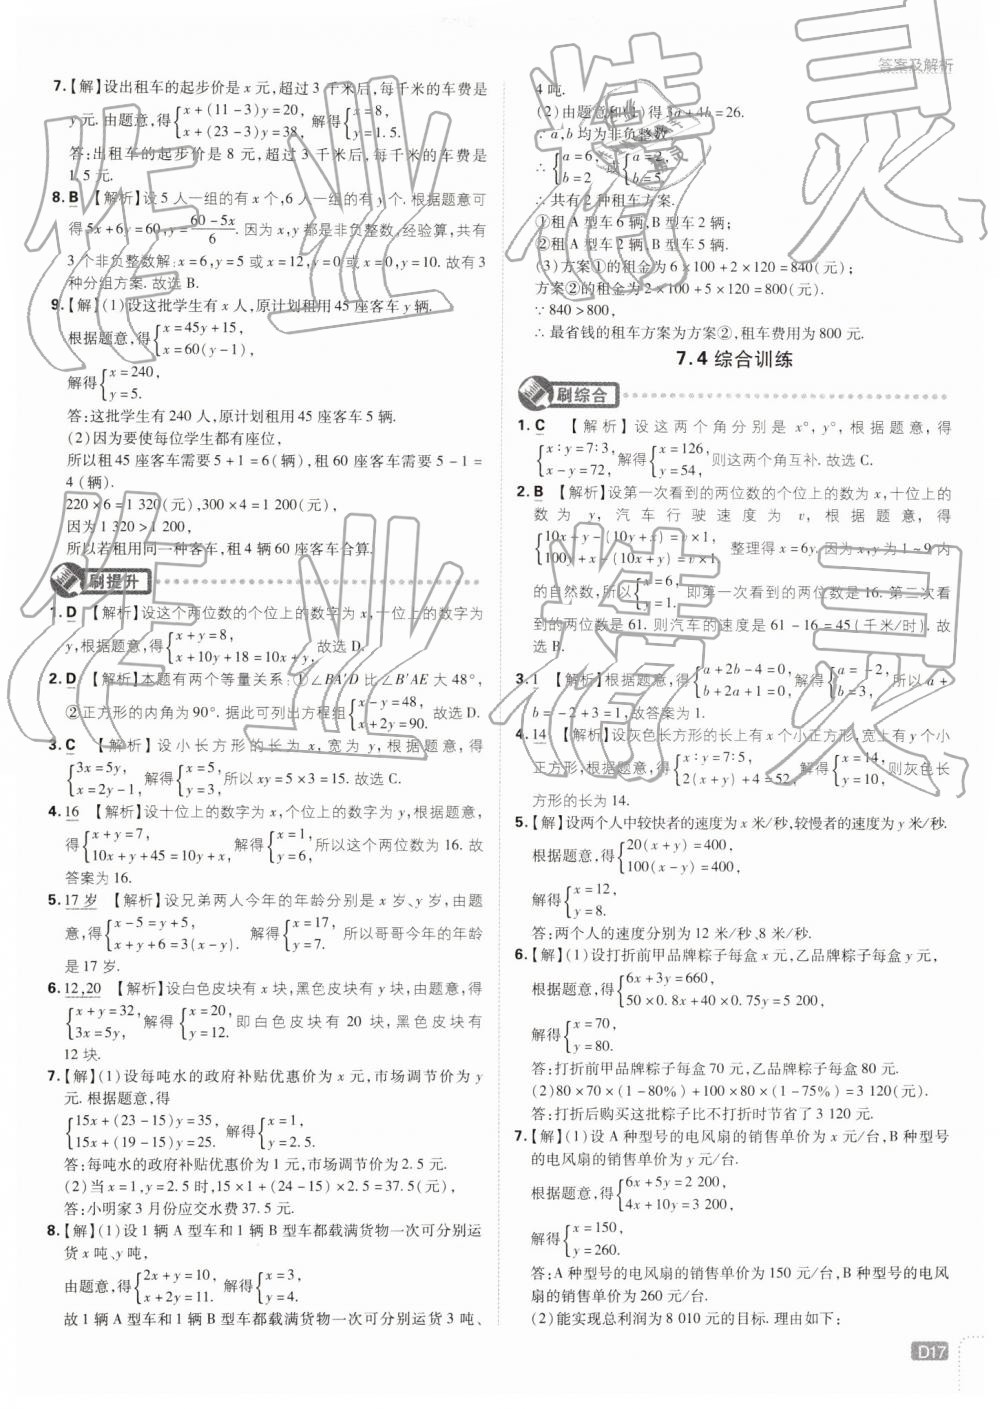 答案及解析
7.【解】设出租车的起步价是 x 元,超过 3 千米后,每千米的车费是
y 元. 由题意,得{x+(11-3)y=20, x+(23-3)y=38, 解得{x=8, y=1.5.
答:出租车的起步价是 8 元,超过 3 千米后,每千米的车费是
1.5 元.
8. B 【解析】设 5 人一组的有 x 个,6 人一组的有 y 个. 根据题意可
得5x+6y=60, y=(60-5x)/6. 因为 x,y 都是非负整数,经验算,共有
3 个非负整数解:x=6,y=5 或 x=12,y=0 或 x=0,y=10. 故有 3
种分组方案. 故选 B.
9.【解】(1)设这批学生有 x 人,原计划租用 45 座客车 y 辆.
根据题意,得{x=45y+15, x=60(y-1),
解得{x=240, y=5.
答:这批学生有 240 人,原计划租用 45 座客车 5 辆.
(2)因为要使每位学生都有座位,
所以租 45 座客车需要 5+1=6(辆),租 60 座客车需要 5-1=
4(辆).
220×6=1 320(元),300×4=1 200(元),
因为 1 320>1 200,
所以若租用同一种客车,租 4 辆 60 座客车合算.
刷提升
1. D 【解析】设这个两位数的个位上的数字为 x,十位上的数字为
y,根据题意,得{x+y=8, x+10y+18=10x+y, 故选 D.
2. D 【解析】本题有两个等量关系:①∠BA′D 比∠B′AE 大 48°,
②正方形的内角为 90°. 据此可列出方程组{x-y=48, x+2y=90. 故选 D.
3. C 【解析】设小长方形的长为 x,宽为 y,根据题意,得
{3x=5y, x=2y-1, 解得{x=5, y=3, 所以 xy=5×3=15. 故选 C.
4. 16 【解析】设十位上的数字为 x,个位上的数字为 y,根据题意,
得{x+y=7, 10x+y+45=10y+x, 解得{x=1, y=6, 所以这个两位数为 16. 故
答案为 16.
5. 17 岁 【解析】设兄弟两人今年的年龄分别是 x 岁、y 岁,由题
意,得{x-5=y+5, x+y+6=3(x-y). 解得{x=17, y=7. 所以哥哥今年的年龄
是 17 岁.
6. 12,20 【解析】设白色皮块有 x 块,黑色皮块有 y 块,由题意,得
{x+y=32, 3x=5y, 解得{x=20, y=12. 即白色皮块有 20 块,黑色皮块有
12 块.
7.【解】(1)设每吨水的政府补贴优惠价为 x 元,市场调节价为 y
元. 根据题意,得
{15x+(23-15)y=35, 15x+(19-15)y=25. 解得{x=1, y=2.5.
答:每吨水的政府补贴优惠价为 1 元,市场调节价为 2.5 元.
(2)当 x=1,y=2.5 时,15×1+(24-15)×2.5=37.5(元),
答:小明家 3 月份应交水费 37.5 元.
8.【解】(1)设 1 辆 A 型车和 1 辆 B 型车都载满货物一次可分别运
货 x 吨、y 吨,
由题意,得{2x+y=10, x+2y=11. 解得{x=3, y=4.
故 1 辆 A 型车和 1 辆 B 型车都载满货物一次可分别运货 3 吨、
4 吨.
(2)由题意和(1)得 3a+4b=26.
∵a,b 均为非负整数,
∴{a=6, b=2 或{a=2, b=5,
∴共有 2 种租车方案.
①租 A 型车 6 辆,B 型车 2 辆;
②租 A 型车 2 辆,B 型车 5 辆.
(3)方案①的租金为 6×100+2×120=840(元);
方案②的租金为 2×100+5×120=800(元).
∵840>800,
∴最省钱的租车方案为方案②,租车费用为 800 元.
7.4 综合训练
刷综合
1. C 【解析】设这两个角分别是 x°,y°,根据题意,得
{x:y=7:3, x-y=72, 解得{x=126, y=54, 则这两个角互补. 故选 C.
2. B 【解析】设第一次看到的两位数的个位上的数为 x,十位上的
数为 y,汽车行驶速度为 v,根据题意,得
{10x+y-(10y+x)=v×1, 100y+x-(10x+y)=v×1, 整理得 x=6y. 因为 x,y 为 1~9 内
的自然数,所以{x=6, y=1. 即第一次看到的两位数是 16. 第二次看
到的两位数是 61. 则汽车的速度是 61-16=45(千米/时). 故
选 B.
3. 1 【解析】根据题意,得{a+2b-4=0, b+2a+1=0, 解得{a=-2, b=3, 所以 a+
b=-2+3=1,故答案为 1.
4. 14 【解析】设灰色长方形的长上有 x 个小正方形,宽上有 y 个小
正方形,根据题意,得{x:y=7:5, 2(x+y)+4=52, 解得{x=14, y=10, 则灰色长
方形的长为 14.
5.【解】设两个人中较快者的速度为 x 米/秒,较慢者的速度为 y 米/秒.
根据题意,得{20(x+y)=400, 100(x-y)=400,
解得{x=12, y=8.
答:两个人的速度分别为 12 米/秒、8 米/秒.
6.【解】(1)设打折前甲品牌粽子每盒 x 元,乙品牌粽子每盒 y 元,
根据题意,得{6x+3y=660, 50×0.8x+40×0.75y=5 200,
解得{x=70, y=80.
答:打折前甲品牌粽子每盒 70 元,乙品牌粽子每盒 80 元.
(2)80×70×(1-80%)+100×80×(1-75%)=3 120(元).
答:打折后购买这批粽子比不打折时节省了 3 120 元.
7.【解】(1)设 A 种型号的电风扇的销售单价为 x 元/台,B 种型号
的电风扇的销售单价为 y 元/台.
根据题意,得{6x+5y=2 200, 4x+10y=3 200,
解得{x=150, y=260.
答:A 种型号的电风扇的销售单价为 150 元/台,B 种型号的电风
扇的销售单价为 260 元/台.
(2)能实现总利润为 8 010 元的目标. 理由如下:
D17
作业精灵
作业精灵